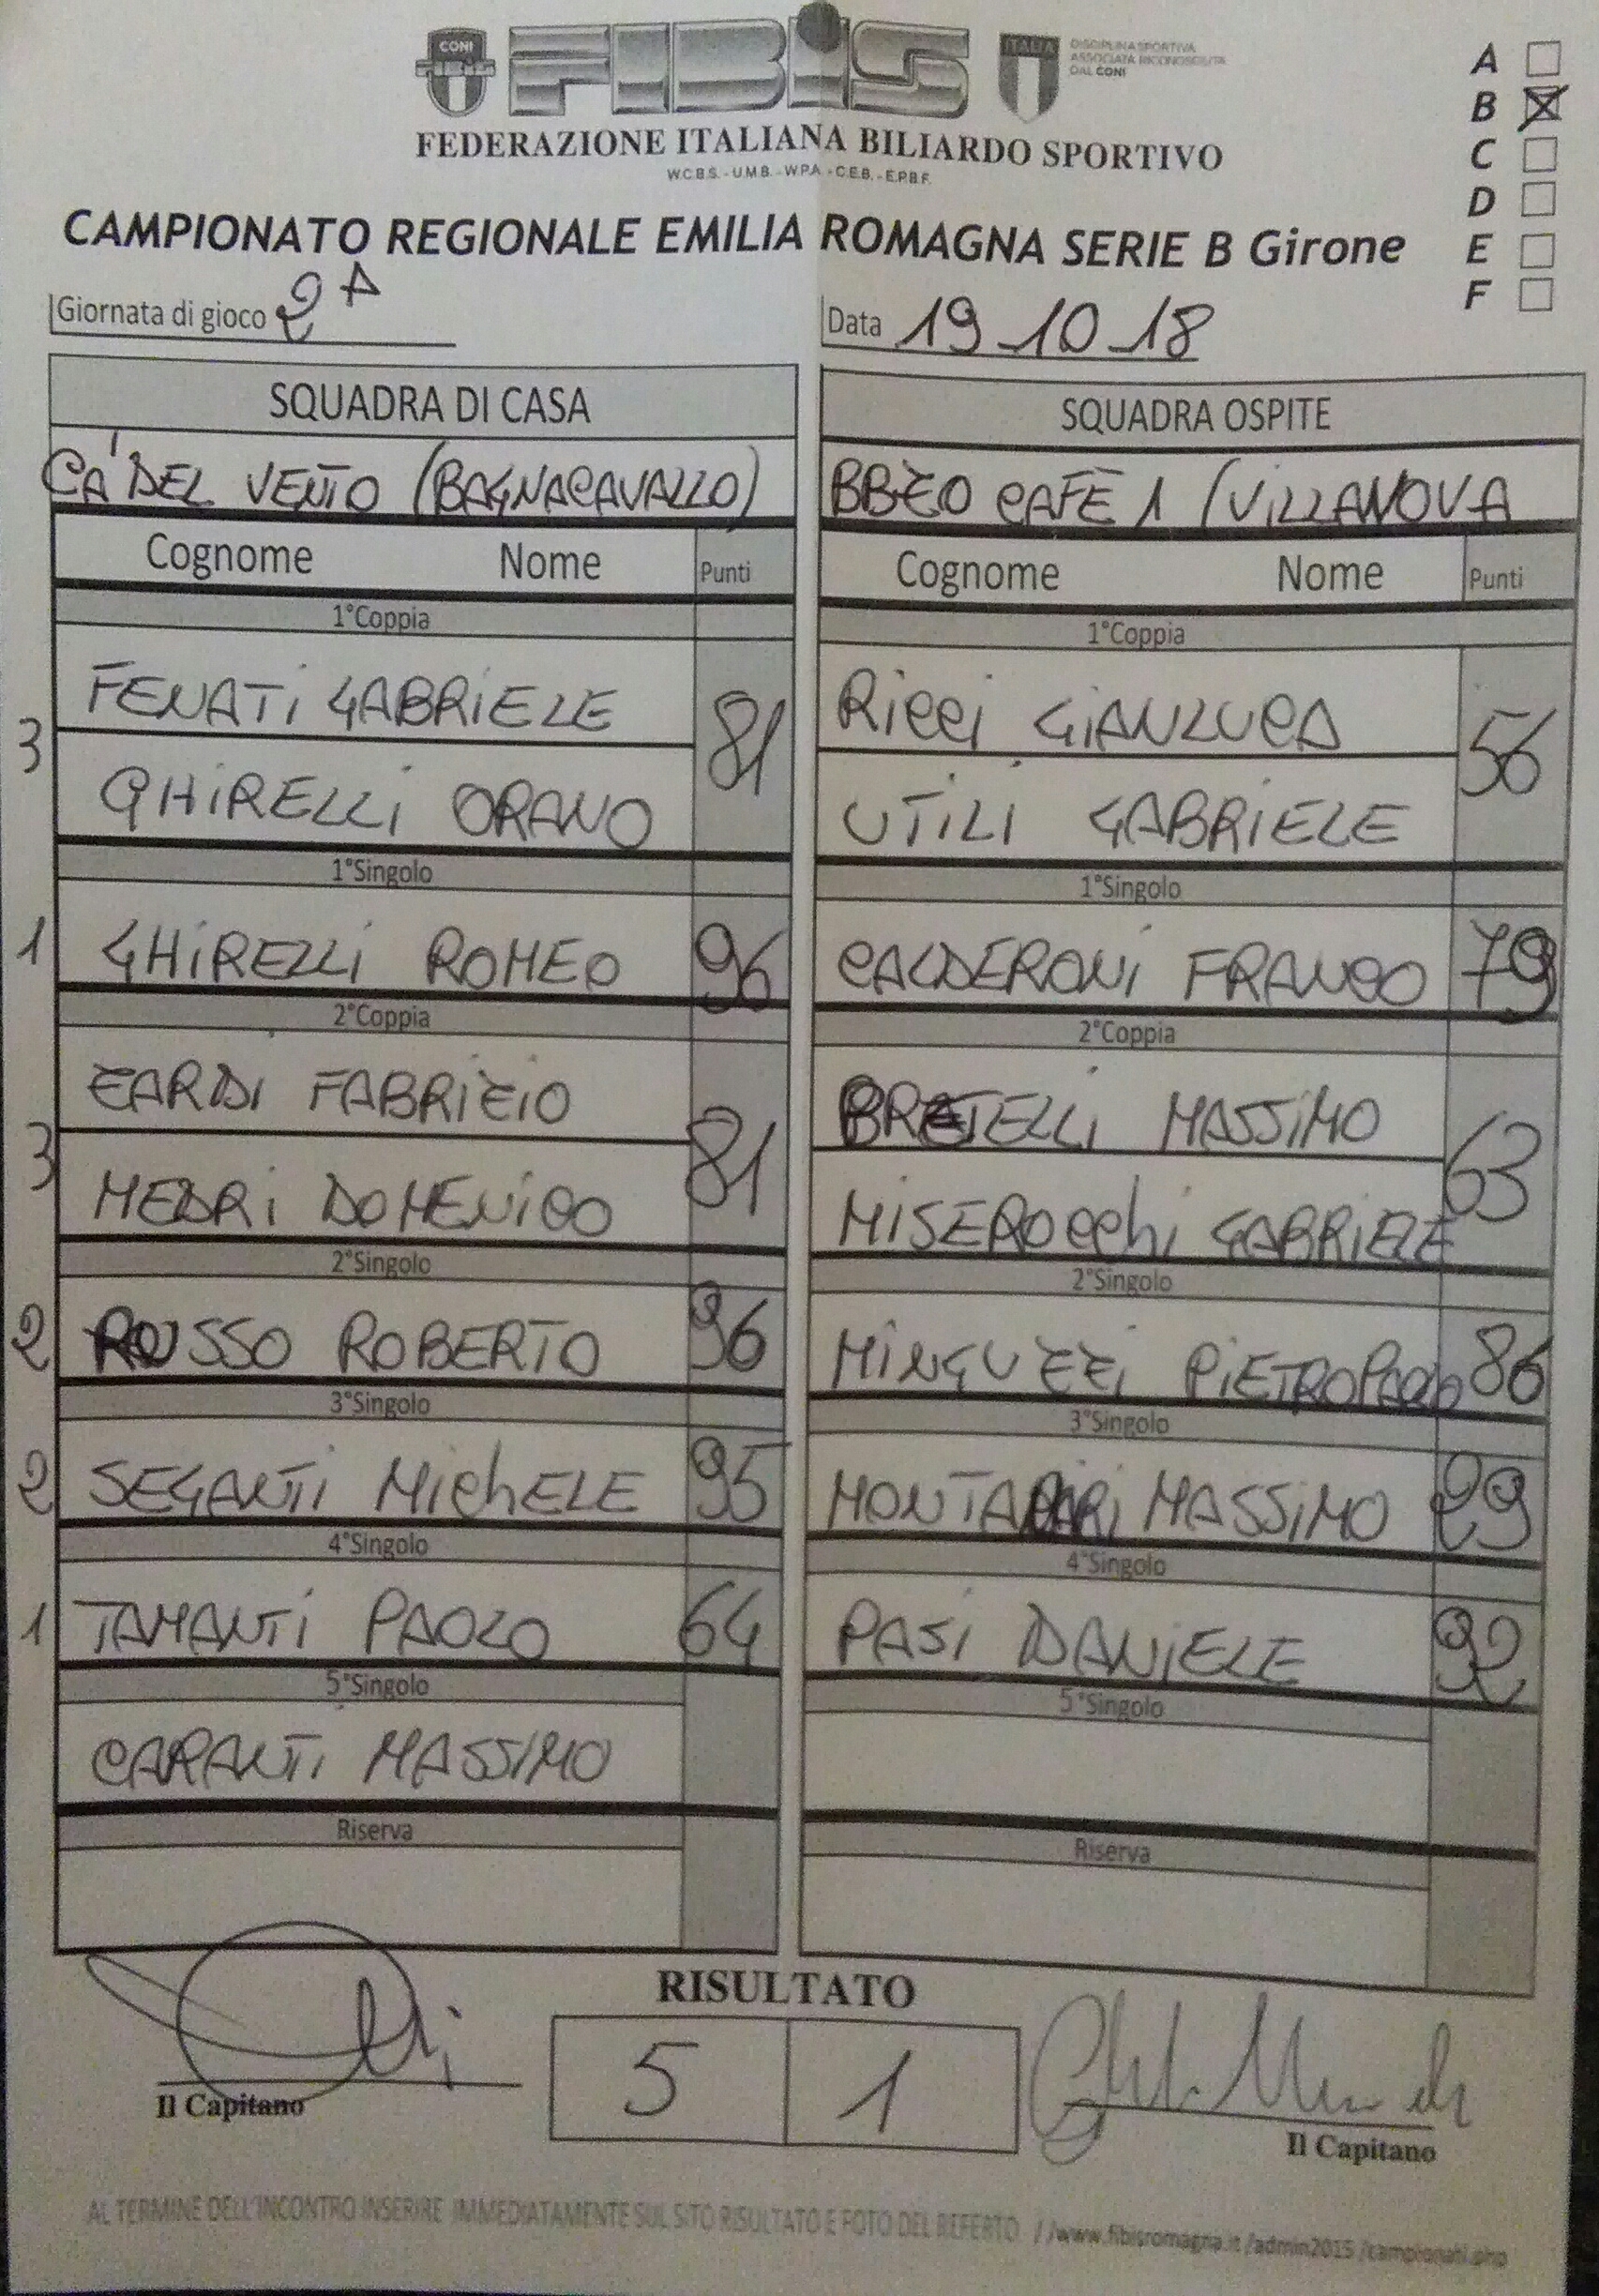 CONI
FIBIS
FIBiS
ITALIA
DISCIPLINA SPORTIVA
ASSOCIATA RICONOSCIUTA
DAL CONI
FEDERAZIONE ITALIANA BILIARDO SPORTIVO
W.C.B.S. - U.M.B. - W.P.A. - C.E.B. - E.P.B.F.
A
B X
C
D
E
F
CAMPIONATO REGIONALE EMILIA ROMAGNA SERIE B Girone
Giornata di gioco 2ª Data 19-10-18
SQUADRA DI CASA SQUADRA OSPITE
CA' DEL VENTO (BAGNACAVALLO) BBZO CAFÈ 1 (VILLANOVA
Cognome Nome Punti Cognome Nome Punti
1°Coppia 1°Coppia
FENATI GABRIELE RICCI GIANLUCA
3 81 56
GHIRELLI ORANO UTILI GABRIELE
1°Singolo 1°Singolo
1 GHIRELLI ROMEO 96 CALDERONI FRANCO 79
2°Coppia 2°Coppia
ZARDI FABRIZIO BRETELLI MASSIMO
3 81 63
MEDRI DOMENICO MISEROCCHI GABRIELE
2°Singolo 2°Singolo
2 RUSSO ROBERTO 96 MINGUZZI PIETROPAOLO 86
3°Singolo 3°Singolo
2 SEGANTI MICHELE 95 MONTANARI MASSIMO 29
4°Singolo 4°Singolo
1 TAMANTI PAOLO 64 PASI DANIELE 92
5°Singolo 5°Singolo
CARANTI MASSIMO
Riserva Riserva
RISULTATO
5 1
Il Capitano Il Capitano
AL TERMINE DELL'INCONTRO INSERIRE IMMEDIATAMENTE SUL SITO RISULTATO E FOTO DEL REFERTO //www.fibisromagna.it /admin2015 /campionati.php